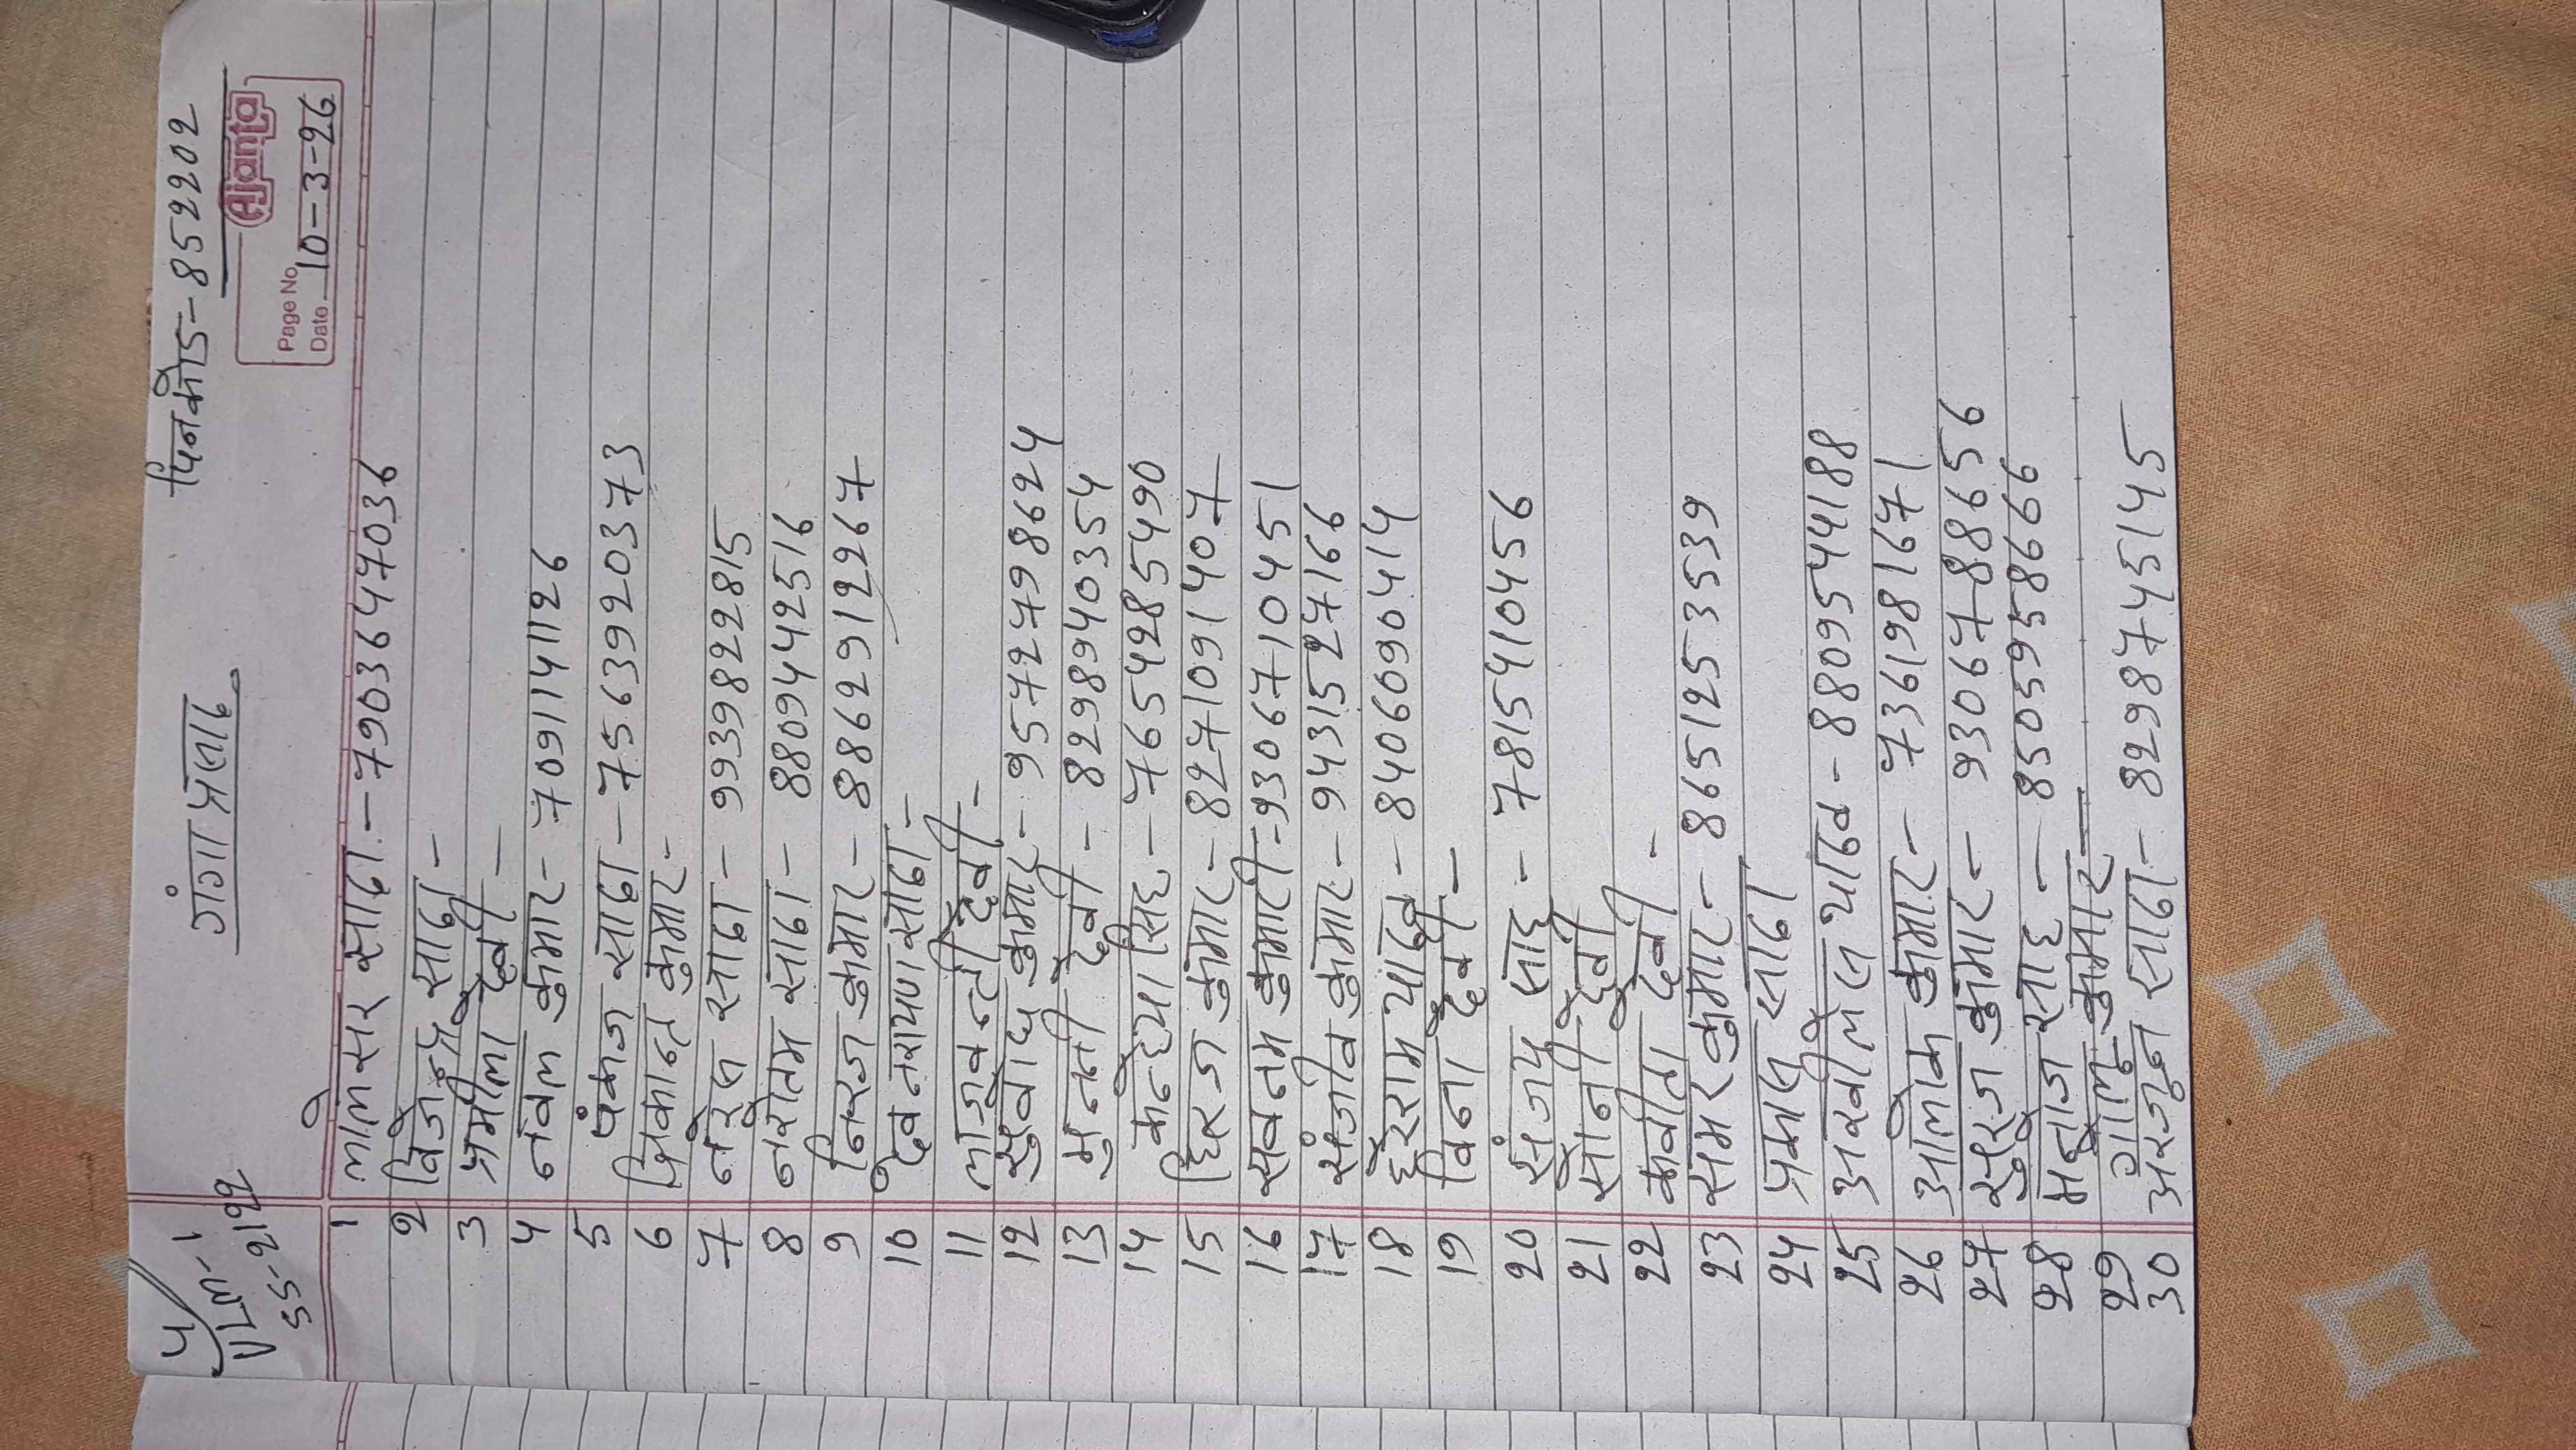 गंगा प्रसाद
पिनकोड-852202
Ajanta
Page No.
Date 10-3-26
1 लालसर सादा.-7903647036
2 विजेन्द्र सादा-
3 प्रमीला देवी-
4 नवल कुमार-7091141126
5 पंकज सादा-7563920373
6 शिकान्द्र कुमार-
7 नरेस सादा-9939822815
8 नरोतम सादा-8809442516
9 निरज कुमार-8862912267
10 देव नरायण सादा-
11 लाजवन्ती देवी-
12 सुवोध कुमार-9572798624
13 मुनती देवी-8298940354
14 कन्हैया सिंह-7654285490
15 धिरज कुमार-8271091407
16 सवनम कुमारी-9306710451
17 संजीव कुमार-9431527166
18 हेरराम यादव-8406090414
19 विना देवी-
20 संजय साह-7815410456
21 सोनी देवी
22 कवीता देवी-
23 समर कुमार-8651253539
24 प्रकास सादा
25 अखीलेस यादव-8809544188
26 आलोक कुमार-7361981671
27 सुरज कुमार-9306788656
28 मनोज साह-8505958666
29 गोलू कुमार-
30 अरजुन सादा-8298745145